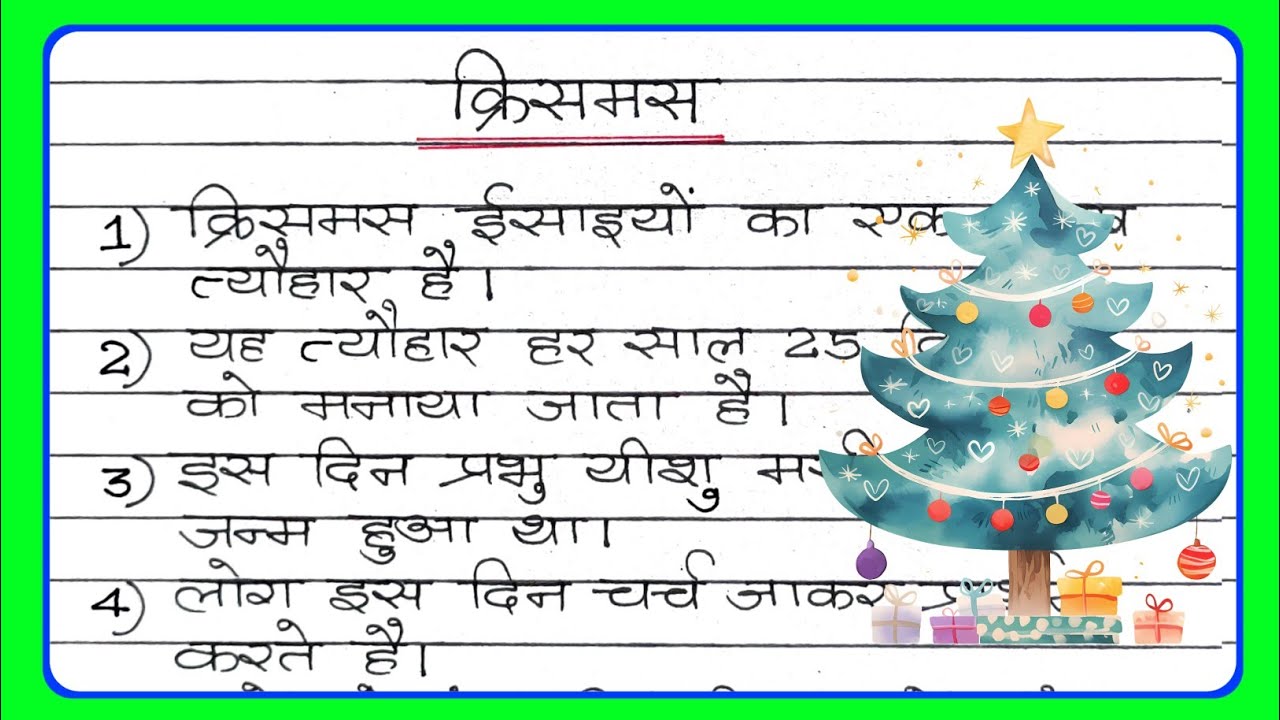 क्रिसमस
1) क्रिसमस ईसाइयों का एक
त्यौहार है।
2) यह त्यौहार हर साल 25
को मनाया जाता है।
3) इस दिन प्रभु यीशु
जन्म हुआ था।
4) लोग इस दिन चर्च जाकर
करते है।